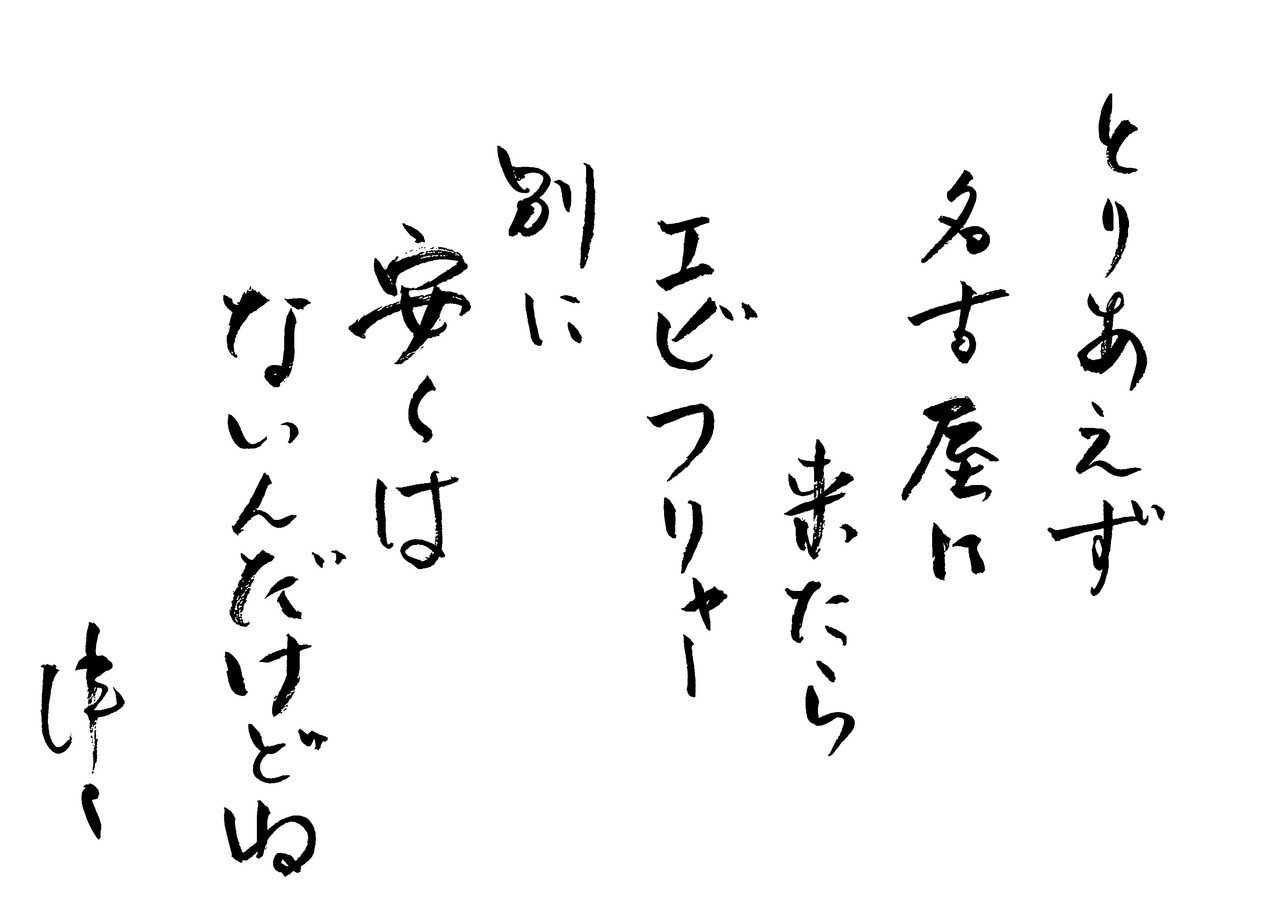 とりあえず
名古屋に
来たら
エビフリャー
別に
安くは
ないんだけどね